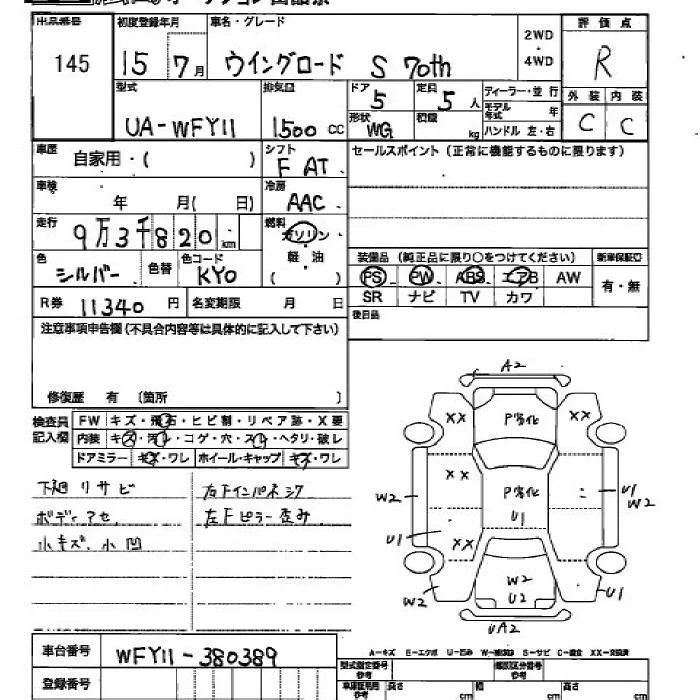 出品番号 初度登録年月 車名・グレード 2WD・4WD 評価点
145 15 7月 ウイングロード S 70th R
型式 排気量 ドア 5 定員 5人 ディーラー・並行 外装 内装
モデル年式 年
UA-WFY11 1500 CC 形状 WG 積載 kg ハンドル 左・右 C C
車歴 自家用・( ) シフト F AT セールスポイント(正常に機能するものに限ります)
車検 年 月( 日) 冷房 AAC
走行 9万3千820km 燃料 ガソリン・軽・油 ( )
装備品 (純正品に限り○をつけてください) 新車保証書
色 シルバー 色替 色コード KY0 PS PW ABS エアB AW 有・無
SR ナビ TV カワ
R券 11340円 名変期限 月 日 後日品
注意事項申告欄(不具合内容等は具体的に記入して下さい)
修復歴 有 [箇所 ]
検査員記入欄 FW キズ・飛石・ヒビ割・リペア跡・X要
内装 キズ・汚レ・コゲ・穴・スレ・ヘタリ・破レ
ドアミラー キズ・ワレ ホイール・キャップ キズ・ワレ
下廻リサビ 右Fインパネシワ
ボディアセ 左Fピラー歪み
小キズ、小凹
A2
XX P劣化 XX
XX P劣化
W2 U1 U1 W2
U1 XX
W2 W2 U2 U1
UA2
A-キズ E-エクボ U-凹み W-補修跡 S-サビ C-腐食 XX-交換済
車台番号 WFY11-380389
型式指定番号 参考 類別区分番号 参考
登録番号 車庫証明用 参考 長さ cm 幅 cm 高さ cm